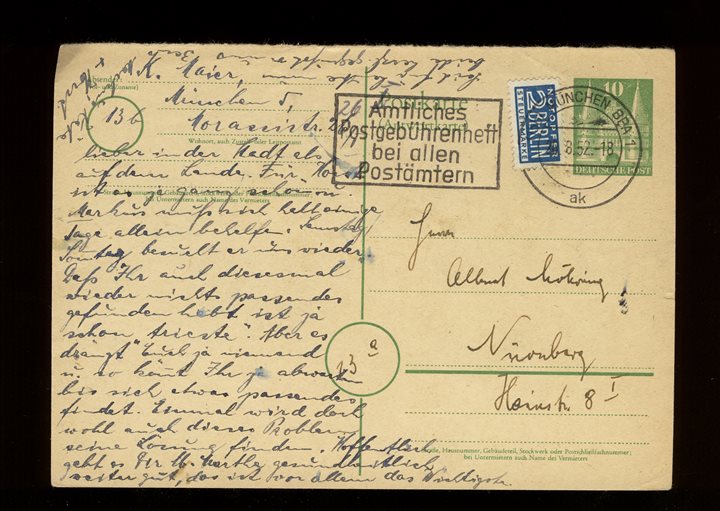 Absender:
K. Maier,
13b
München 5,
Morassistr. 2
Wohnort, auch Zustell- oder Leitpostamt
Postkarte
Amtliches
Postgebührenheft
bei allen
Postämtern
NOTOPFER
2 BERLIN
STEUERMARKE
MÜNCHEN BPA 1
8.52.-18
ak
10
DEUTSCHE POST
lieber in der Stadt als
auf dem Lande. Für
ist es ja ganz schön u.
Markus muß sich halt einige
Tage allein behelfen. Samstag
Sonntag besucht er uns wieder.
Daß Ihr auch diesesmal
wieder nichts passendes
gefunden habt ist ja
schon "trieste". Aber es
drängt Euch ja niemand
u. so könnt Ihr ja abwarten
bis sich etwas passendes
findet. Einmal wird doch
wohl auch dieses Problem
seine Lösung finden. Hoffentlich
geht es Dir lb. Martha gesundheitlich
weiter gut, das ist vor allem das Wichtigste.
Herrn
Albert
13a
Nürnberg
Hainstr. 8 I
Straße, Hausnummer, Gebäudeteil, Stockwerk oder Postschließfachnummer;
bei Untermietern auch Name des Vermieters